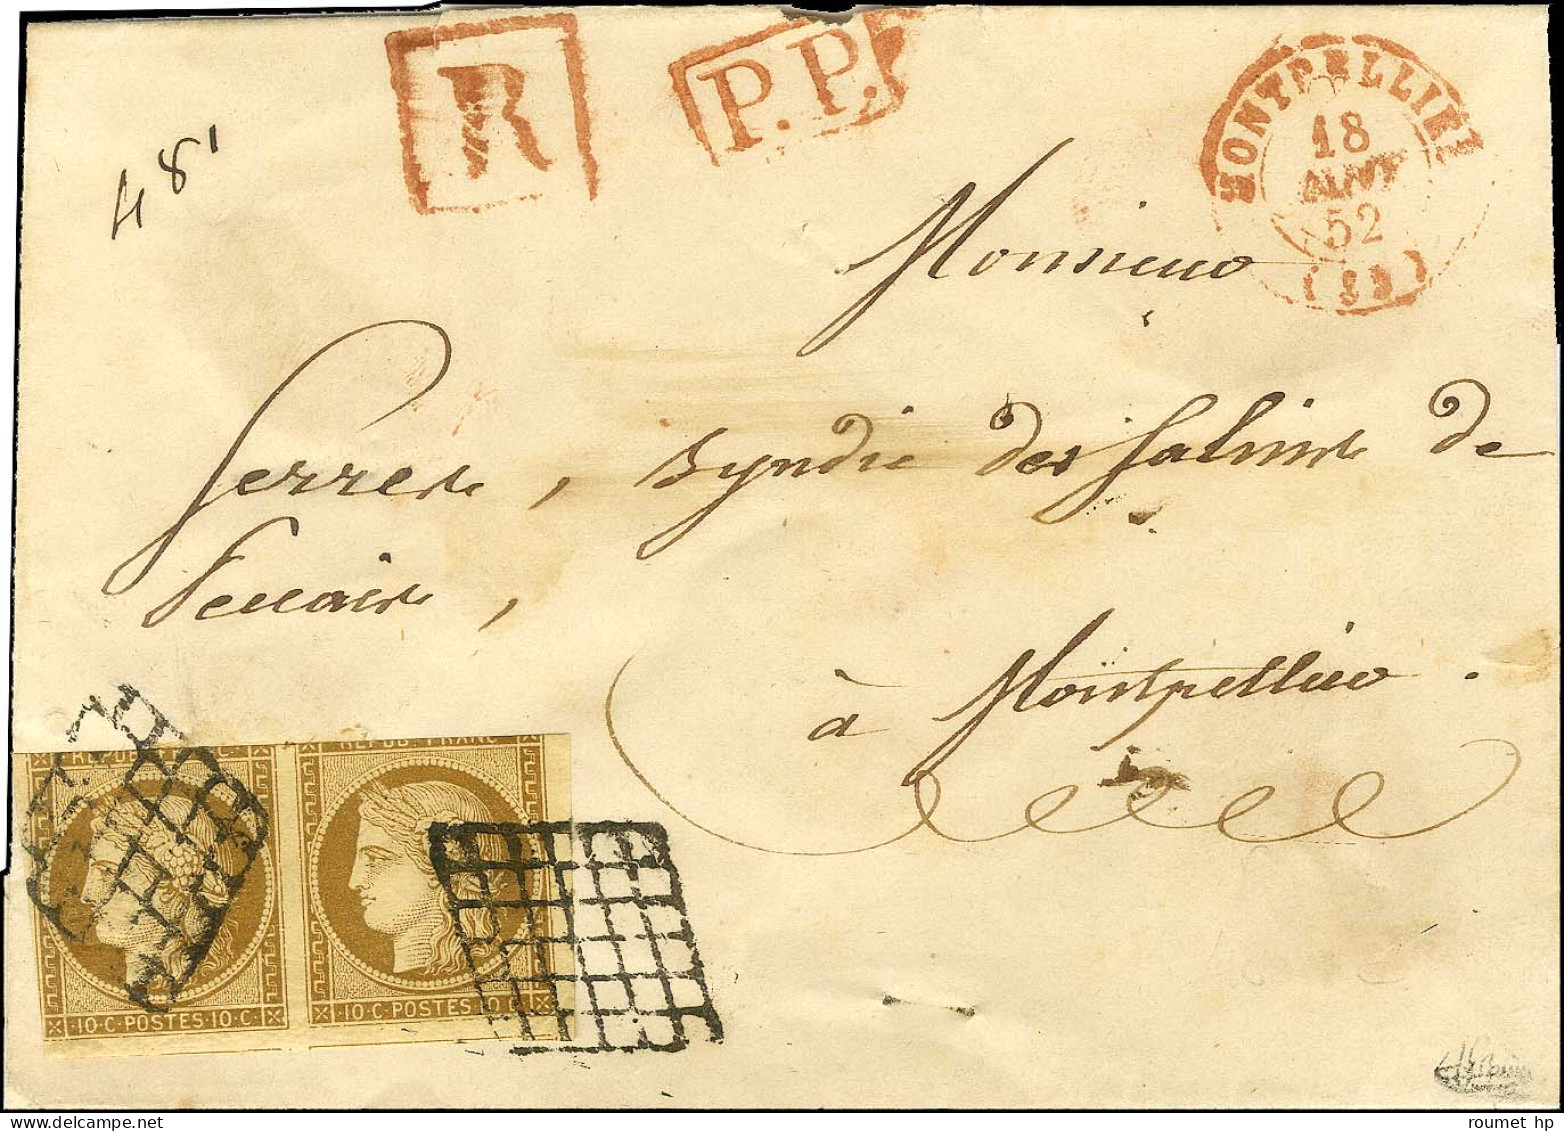 R
P.P.
MONTPELLIER
18
AOUT
52
(33)
48
Monsieur
Serres, syndic des Salines de
à Montpellier.
REPUB FRANC
REPUB FRANC
10·C·POSTES·10·C·
10·C·POSTES·10·C·
roumet hp